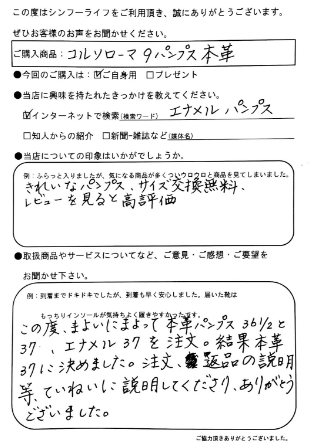 この度はシンフーライフをご利用頂き、誠にありがとうございます。
ぜひお客様のお声をお聞かせください。
ご購入商品：コルソローマ9パンプス本革
●今回のご購入は：☑ご自身用 □プレゼント
●当店に興味を持たれたきっかけを教えてください。
☑インターネットで検索(検索ワード) エナメルパンプス
□知人からの紹介 □新聞・雑誌など(媒体名)
●当店についての印象はいかがでしょうか。
例：ふらっと入りましたが、気になる商品が多くついウロウロと商品を見てしまいました。
きれいなパンプス、サイズ交換無料、
レビューを見ると高評価
●取扱商品やサービスについてなど、ご意見・ご感想・ご要望を
お聞かせ下さい。
例：到着までドキドキでしたが、到着も早く安心しました。届いた靴は
もっちりインソールが気持ちよく履きやすかったです。
この度、まよいにまよって本革パンプス36 1/2と
37、エナメル37を注文。結果本革
37に決めました。注文、返品の説明
等、ていねいに説明してくださり、ありがとう
ございました。
ご協力頂きありがとうございました。